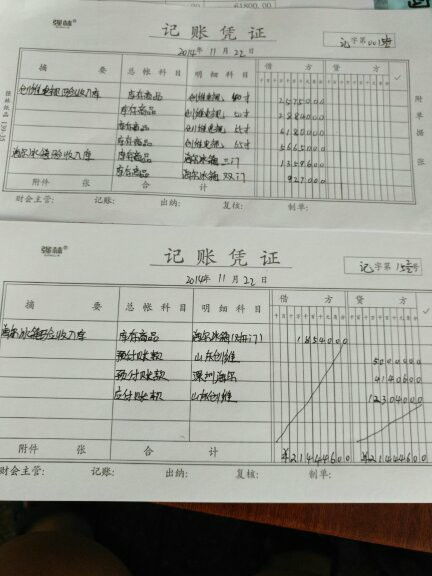 61800.00
强林®
记账凭证
2014年 11月 22日
记字第0015号
摘 要 总帐科目 明细科目 借方 贷方 ✓
创维电视验收入库 库存商品 创维电视 40寸 2575000
库存商品 创维电视 50寸 2884000
库存商品 创维电视 55寸 6180000
库存商品 创维电视 65寸 5665000
海尔冰箱验收入库 库存商品 海尔冰箱 三门 1359600
库存商品 海尔冰箱 双门 927000
附件 张 合 计
财会主管: 记账: 出纳: 复核: 制单:
强林纸品 120-35
附单据 张
强林®
记账凭证
2014年 11月 22日
摘 要 总帐科目 明细科目 借方 贷方 ✓
海尔冰箱验收入库 库存商品 1854000
预付账款 山东创维 5000000
预付账款 深圳海尔 4140600
应付账款 山东创维 12304000
附件 张 合 计 ¥21444600 ¥21444600
财会主管: 记账: 出纳: 复核: 制单: